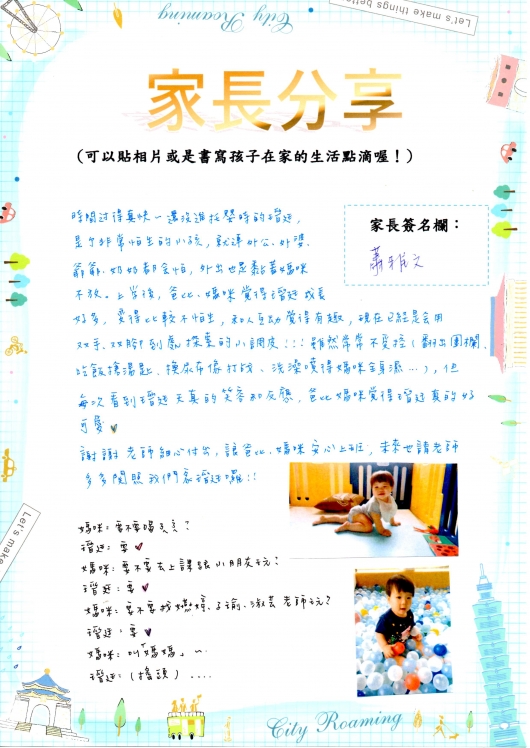 City Roaming
Let's make things bette
家長分享
(可以貼相片或是書寫孩子在家的生活點滴喔！)
家長簽名欄：
時間過得真快，還沒進托嬰時的瑨廷，
是个非常怕生的小孩，就連外公、外婆、
爺爺、奶奶都会怕，外出也是黏著媽咪
不放。上学後，爸比、媽咪覺得瑨廷成長
好多，變得比較不怕生，和人互動覺得有趣，現在已經是会用
双手、双腳到處探索的小調皮!!! 雖然常常不受控(翻出圍欄、
吃飯搶湯匙、換尿布像打战、洗澡噴得媽咪全身濕…)，但
每次看到瑨廷天真的笑容和反應，爸比媽咪覺得瑨廷真的好
可愛♥
謝謝老師細心付出，讓爸比、媽咪安心上班，未來也請老師
多多關照我們家瑨廷囉!!
媽咪：要不要喝ㄋㄟㄋㄟ?
瑨廷：要♥
媽咪：要不要去上課跟小朋友玩?
瑨廷：要♥
媽咪：要不要找 老師玩?
瑨廷：要♥
媽咪：叫「媽媽」~
瑨廷：(搖頭)....
Let's make
City Roaming